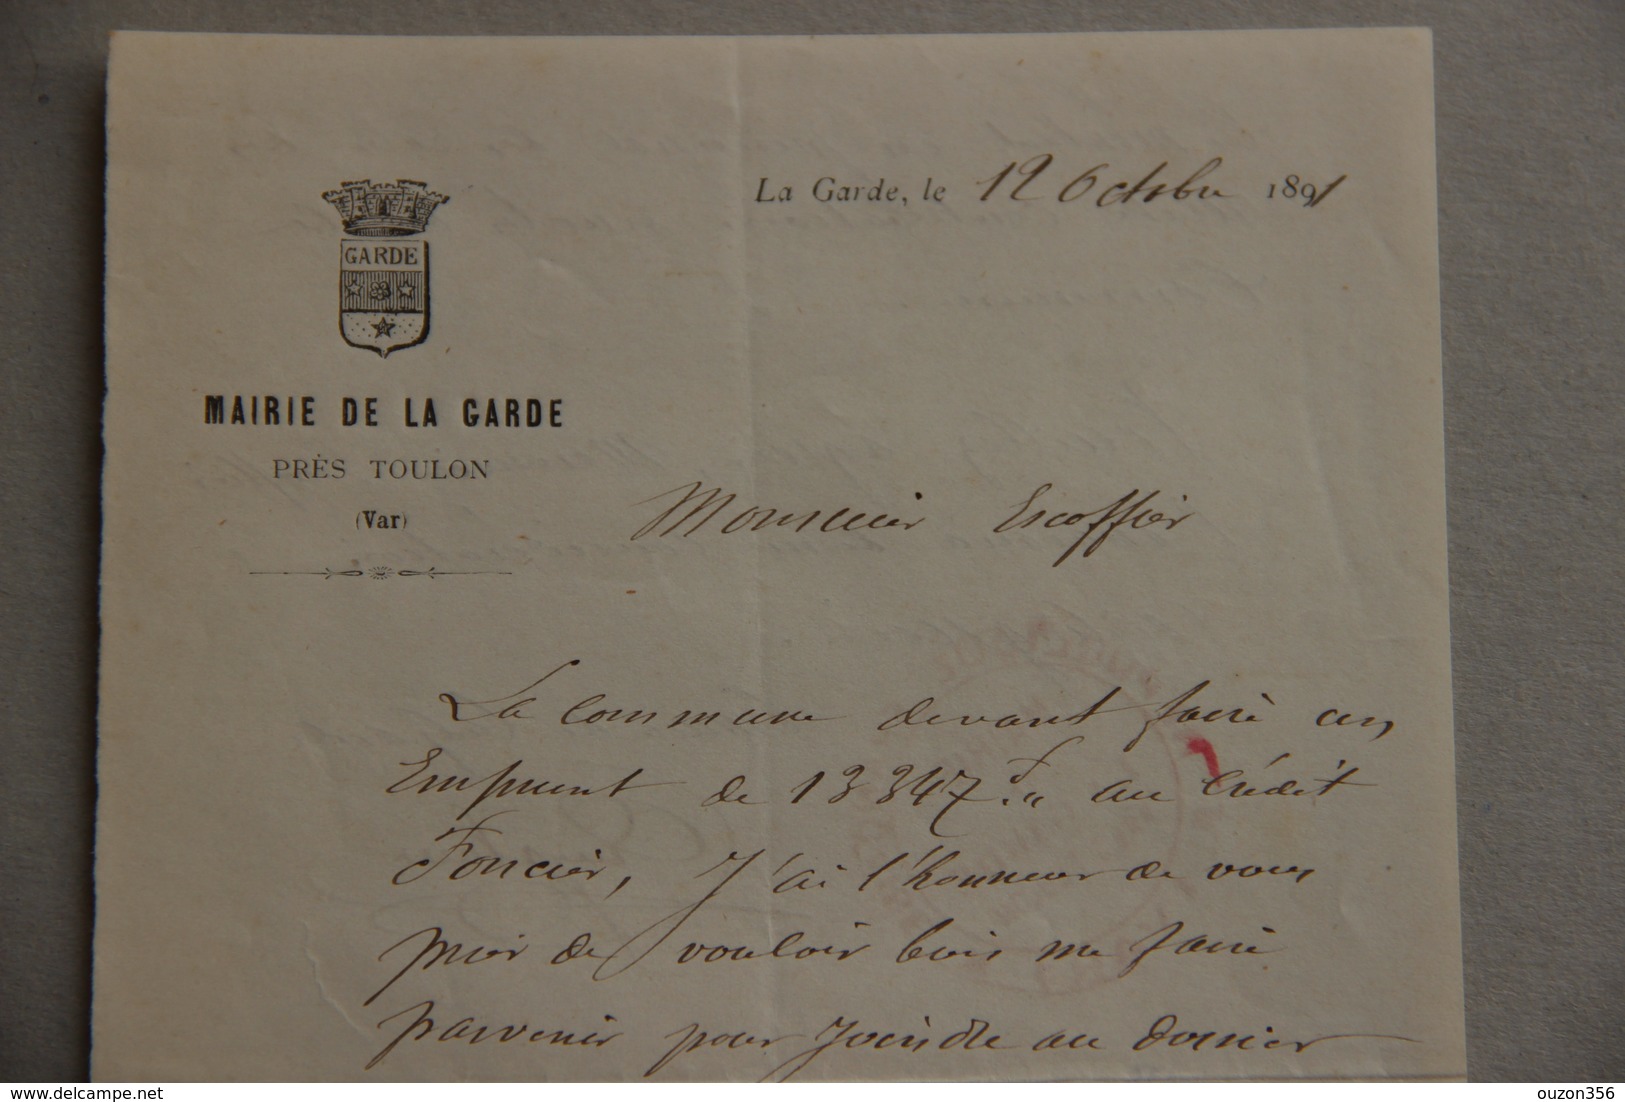 La Garde, le 12 Octobre 1891
GARDE
MAIRIE DE LA GARDE
PRÈS TOULON
(Var)
Monsieur Escoffier
La commune devant faire un
Emprunt de 13347 f. " au Crédit
Foncier, J'ai l'honneur de vous
prier de vouloir bien me faire
parvenir pour joindre au dossier
delcampe.net
ouzon356